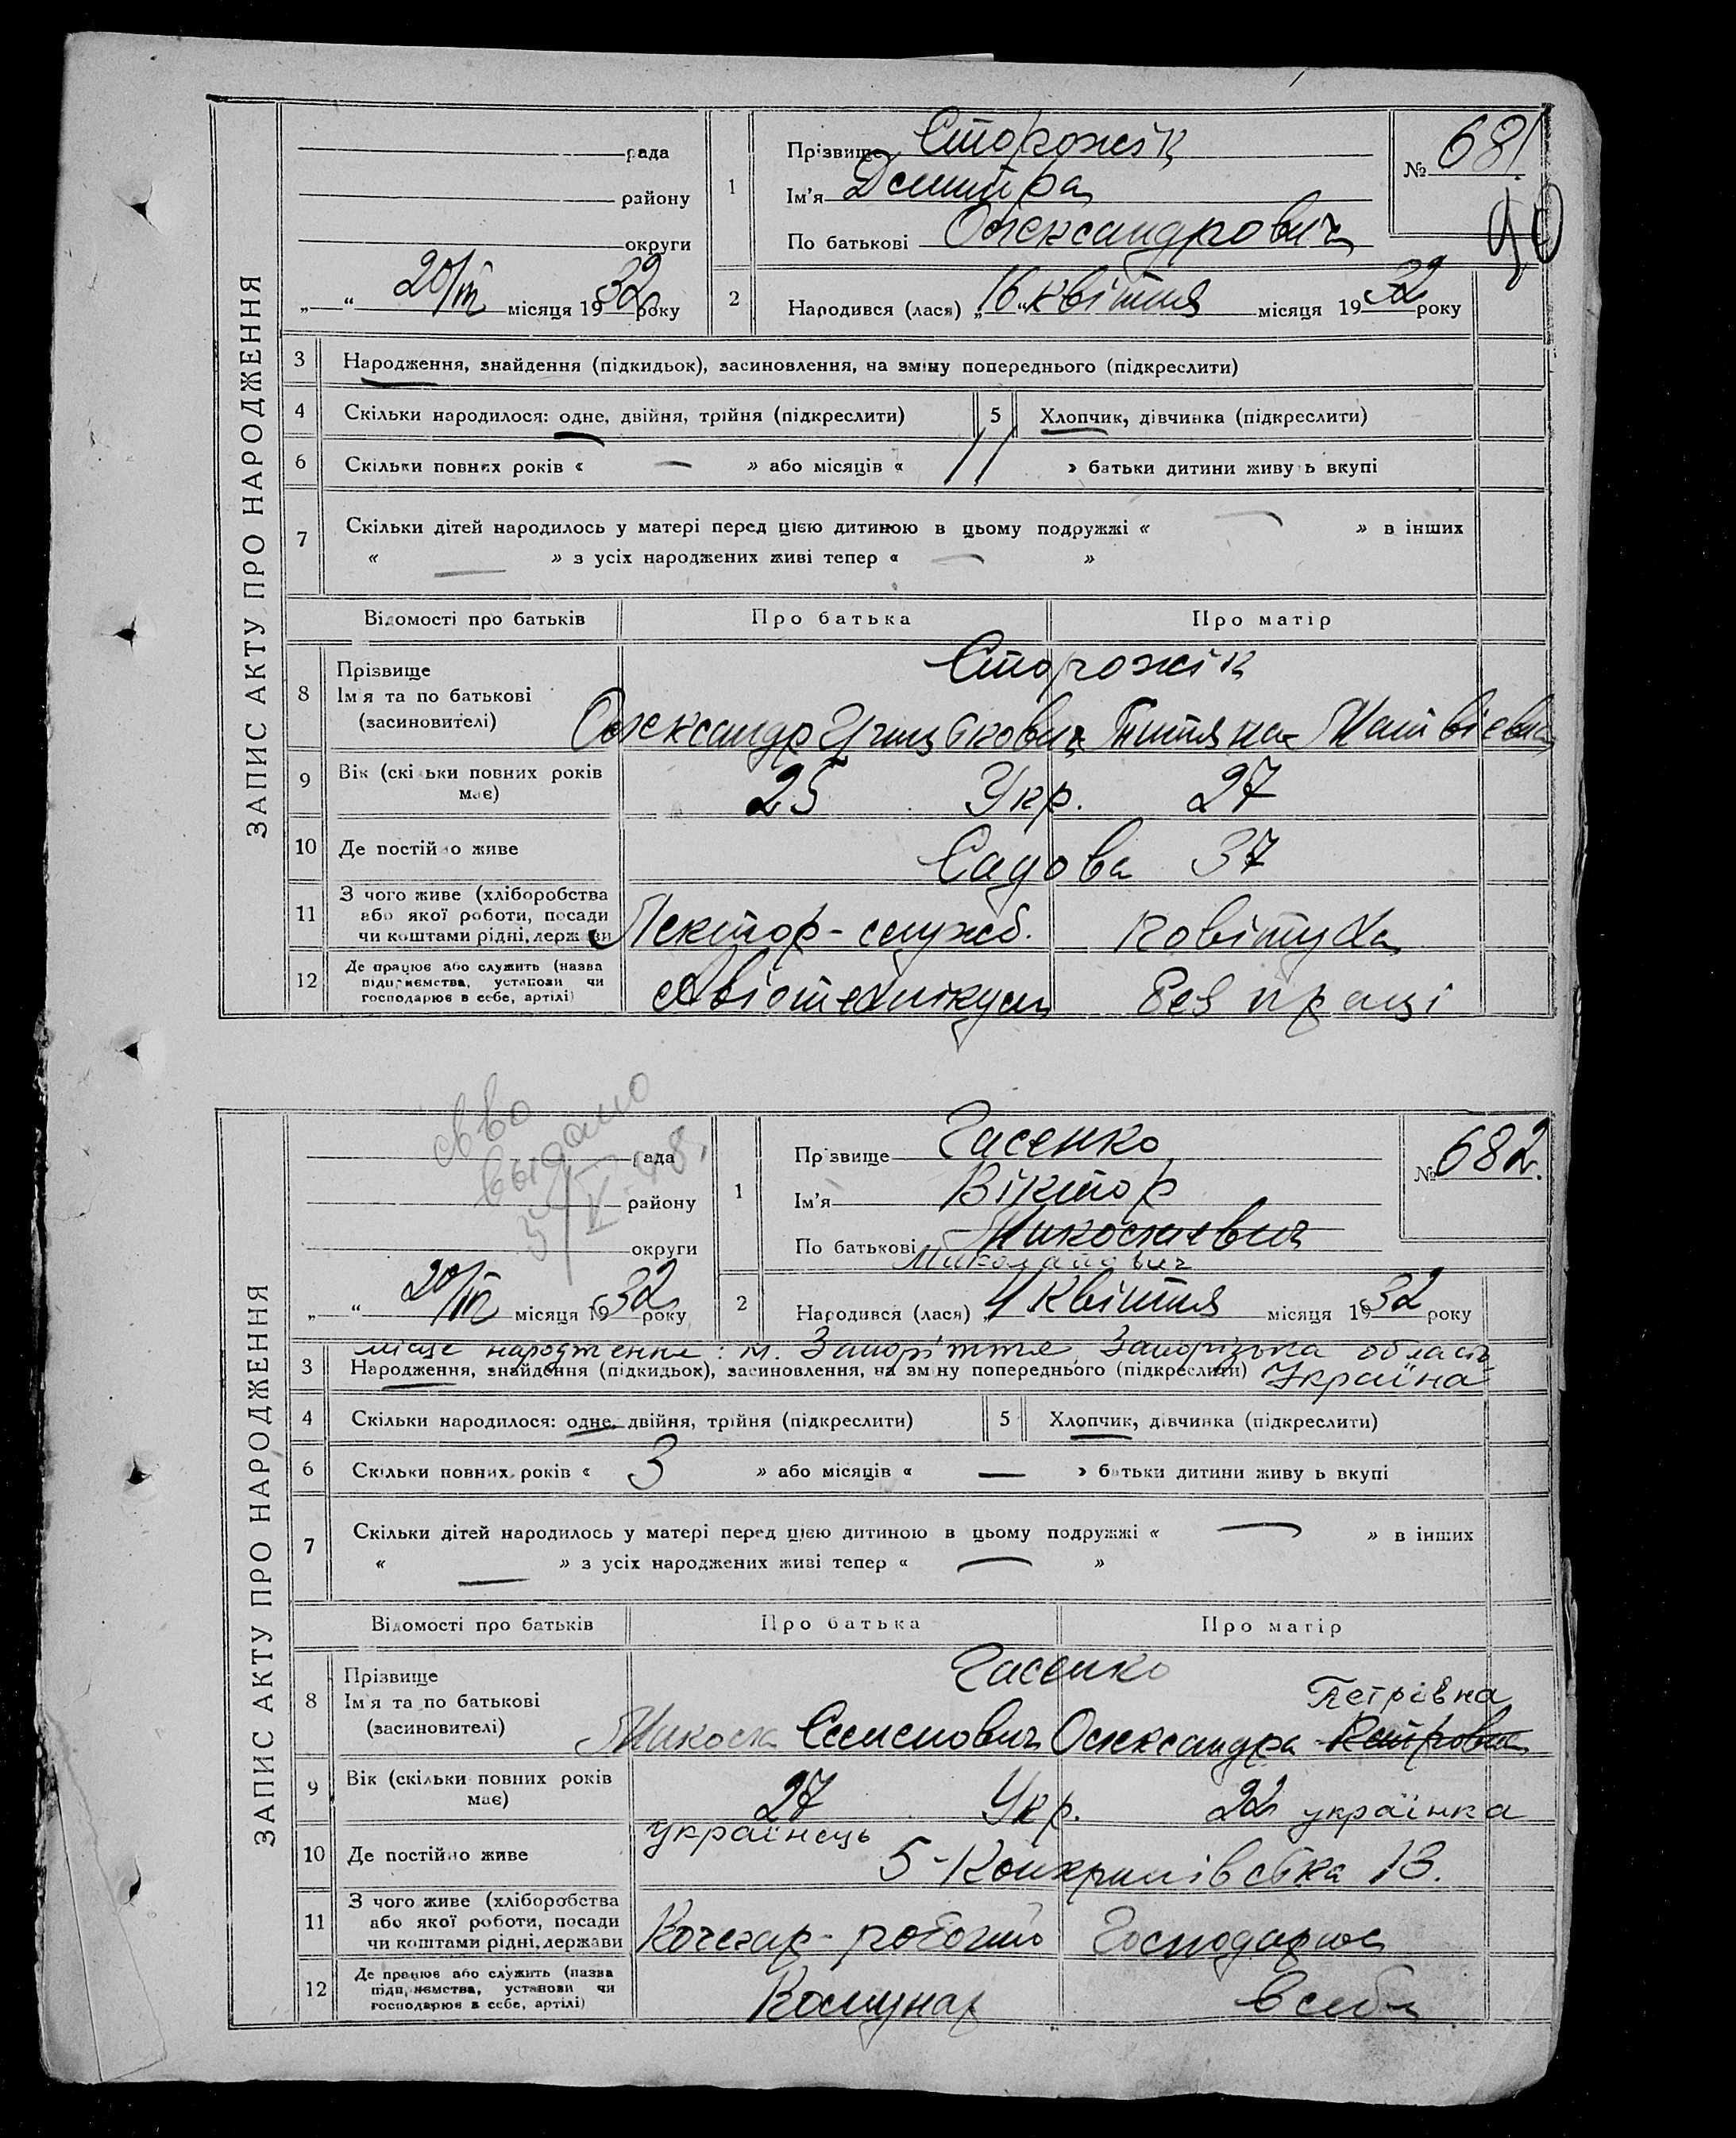 ЗАПИС АКТУ ПРО НАРОДЖЕННЯ
рада
району
округи
20/IV місяця 1932 року
1
Прізвище Сторожік
Ім'я Дмитра
По батькові Олександрович
№ 681
90
2
Народився (лася) „16" квітня місяця 1932 року
3 Народження, знайдення (підкидьок), засиновлення, на зміну попереднього (підкреслити)
4 Скільки народилося: одне, двійня, трійня (підкреслити) 5 Хлопчик, дівчинка (підкреслити)
6 Скільки повних років « — » або місяців « 11 » батьки дитини живуть вкупі
7 Скільки дітей народилось у матері перед цією дитиною в цьому подружжі « — » в інших
« — » з усіх народжених живі тепер « — »
Відомості про батьків Про батька Про матір
8 Прізвище Сторожік
Ім'я та по батькові
(засиновителі) Олександр Титяна Матвієвна
9 Вік (скільки повних років має) 25 Укр. 27
10 Де постійно живе Садова 37
11 З чого живе (хліборобства
або якої роботи, посади
чи коштами рідні, держави Лектор-служб. Повітуха
12 Де працює або служить (назва
підприємства, установи чи
господарює в себе, артілі) Авіотехнікум без праці
ЗАПИС АКТУ ПРО НАРОДЖЕННЯ
выдано
5/V-48.
рада
району
округи
20/IV місяця 1932 року
1
Прізвище Гасенко
Ім'я Віктор
По батькові Николаевич
Миколайович
№ 682.
2
Народився (лася) „4 Квітня місяця 1932 року
місце народження: м. Запоріжжя, Запорізька область
Україна
3 Народження, знайдення (підкидьок), засиновлення, на зміну попереднього (підкреслити)
4 Скільки народилося: одне, двійня, трійня (підкреслити) 5 Хлопчик, дівчинка (підкреслити)
6 Скільки повних років « 3 » або місяців « — » батьки дитини живуть вкупі
7 Скільки дітей народилось у матері перед цією дитиною в цьому подружжі « — » в інших
« — » з усіх народжених живі тепер « — »
Відомості про батьків Про батька Про матір
8 Прізвище Гасенко
Ім'я та по батькові Петрівна
(засиновителі) Микола Семенович Олександра Петровна
9 Вік (скільки повних років має) 27 Укр. 22 українка
українець
10 Де постійно живе 13.
11 З чого живе (хліборобства
або якої роботи, посади
чи коштами рідні, держави Кочегар-робочий Господарює
12 Де працює або служить (назва
підприємства, установи чи
господарює в себе, артілі) Комунар в себе